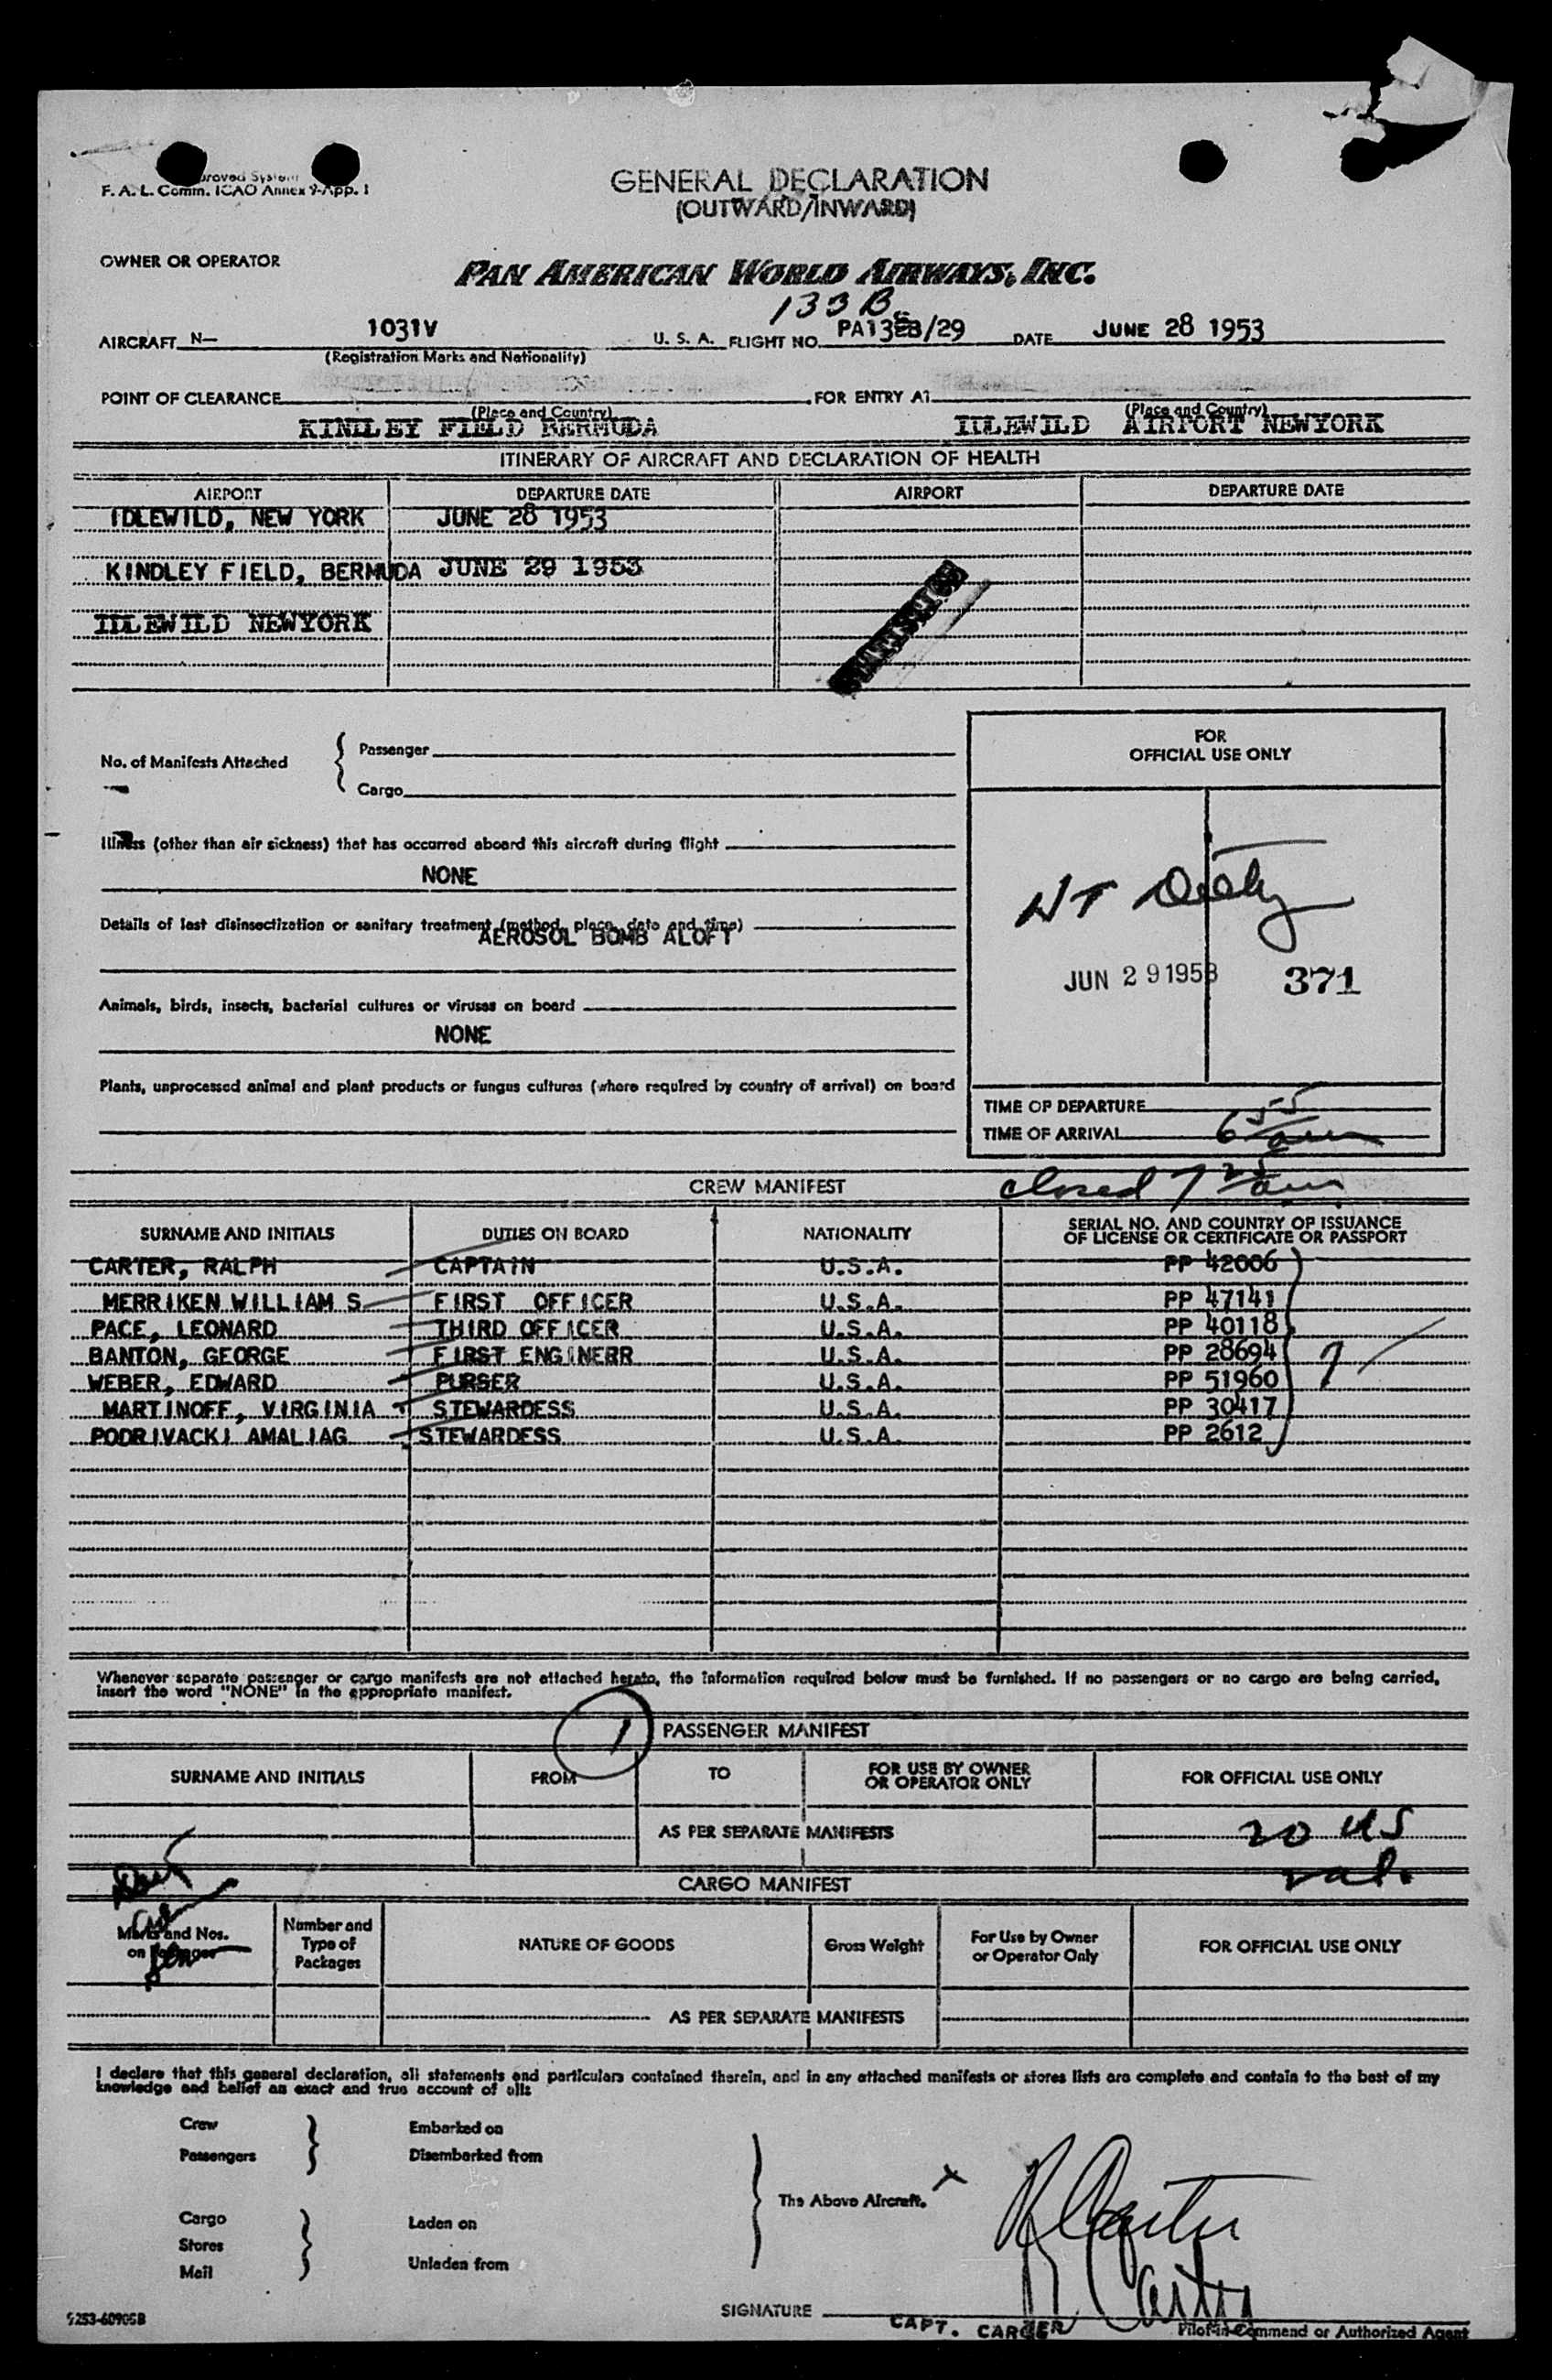 GENERAL DECLARATION
(OUTWARD/INWARD)
F. A. L. Comm. ICAO Annex 9-App. 1
OWNER OR OPERATOR PAN AMERICAN WORLD AIRWAYS, INC.
133 B
AIRCRAFT N— 1031V U. S. A. FLIGHT NO. /29 DATE JUNE 28 1953
(Registration Marks and Nationality)
POINT OF CLEARANCE FOR ENTRY AT
(Place and Country) (Place and Country)
FIELD BERMUDA AIRPORT NEWYORK
ITINERARY OF AIRCRAFT AND DECLARATION OF HEALTH
AIRPORT DEPARTURE DATE AIRPORT DEPARTURE DATE
IDLEWILD, NEW YORK JUNE 28 1953
KINDLEY FIELD, BERMUDA JUNE 29 1953
NEWYORK
FOR
OFFICIAL USE ONLY
No. of Manifests Attached
Passenger
Cargo
Illness (other than air sickness) that has occurred aboard this aircraft during flight
NONE
Details of last disinsectization or sanitary treatment (method, place, date and time)
AEROSOL BOMB ALOFT
JUN 29 1953 371
Animals, birds, insects, bacterial cultures or viruses on board
NONE
Plants, unprocessed animal and plant products or fungus cultures (where required by country of arrival) on board
TIME OF DEPARTURE
TIME OF ARRIVAL 6 55 am
closed 7 25 am
CREW MANIFEST
SURNAME AND INITIALS DUTIES ON BOARD NATIONALITY SERIAL NO. AND COUNTRY OF ISSUANCE
OF LICENSE OR CERTIFICATE OR PASSPORT
CARTER, RALPH CAPTAIN U.S.A. PP 42006
MERRIKEN WILLIAM S FIRST OFFICER U.S.A. PP 47141
PACE, LEONARD THIRD OFFICER U.S.A. PP 40118
BANTON, GEORGE FIRST ENGINERR U.S.A. PP 28694
WEBER, EDWARD PURSER U.S.A. PP 51960
7
MARTINOFF, VIRGINIA STEWARDESS U.S.A. PP 30417
PODRIVACKI AMALIAG STEWARDESS U.S.A. PP 2612
Whenever separate passenger or cargo manifests are not attached hereto, the information required below must be furnished. If no passengers or no cargo are being carried,
insert the word "NONE" in the appropriate manifest.
1
PASSENGER MANIFEST
SURNAME AND INITIALS FROM TO FOR USE BY OWNER
OR OPERATOR ONLY FOR OFFICIAL USE ONLY
AS PER SEPARATE MANIFESTS 20 US
CARGO MANIFEST
Marks and Nos.
on
Number and
Type of
Packages
NATURE OF GOODS
Gross Weight
For Use by Owner
or Operator Only
FOR OFFICIAL USE ONLY
AS PER SEPARATE MANIFESTS
I declare that this general declaration, all statements and particulars contained therein, and in any attached manifests or stores lists are complete and contain to the best of my
knowledge and belief an exact and true account of all:
Crew
Passengers
Embarked on
Disembarked from
Cargo
Stores
Mail
Laden on
Unladen from
The Above Aircraft.
X
R Carter
R Carter
SIGNATURE
CAPT.
Pilot-in-Command or Authorized Agent
9253-60905B